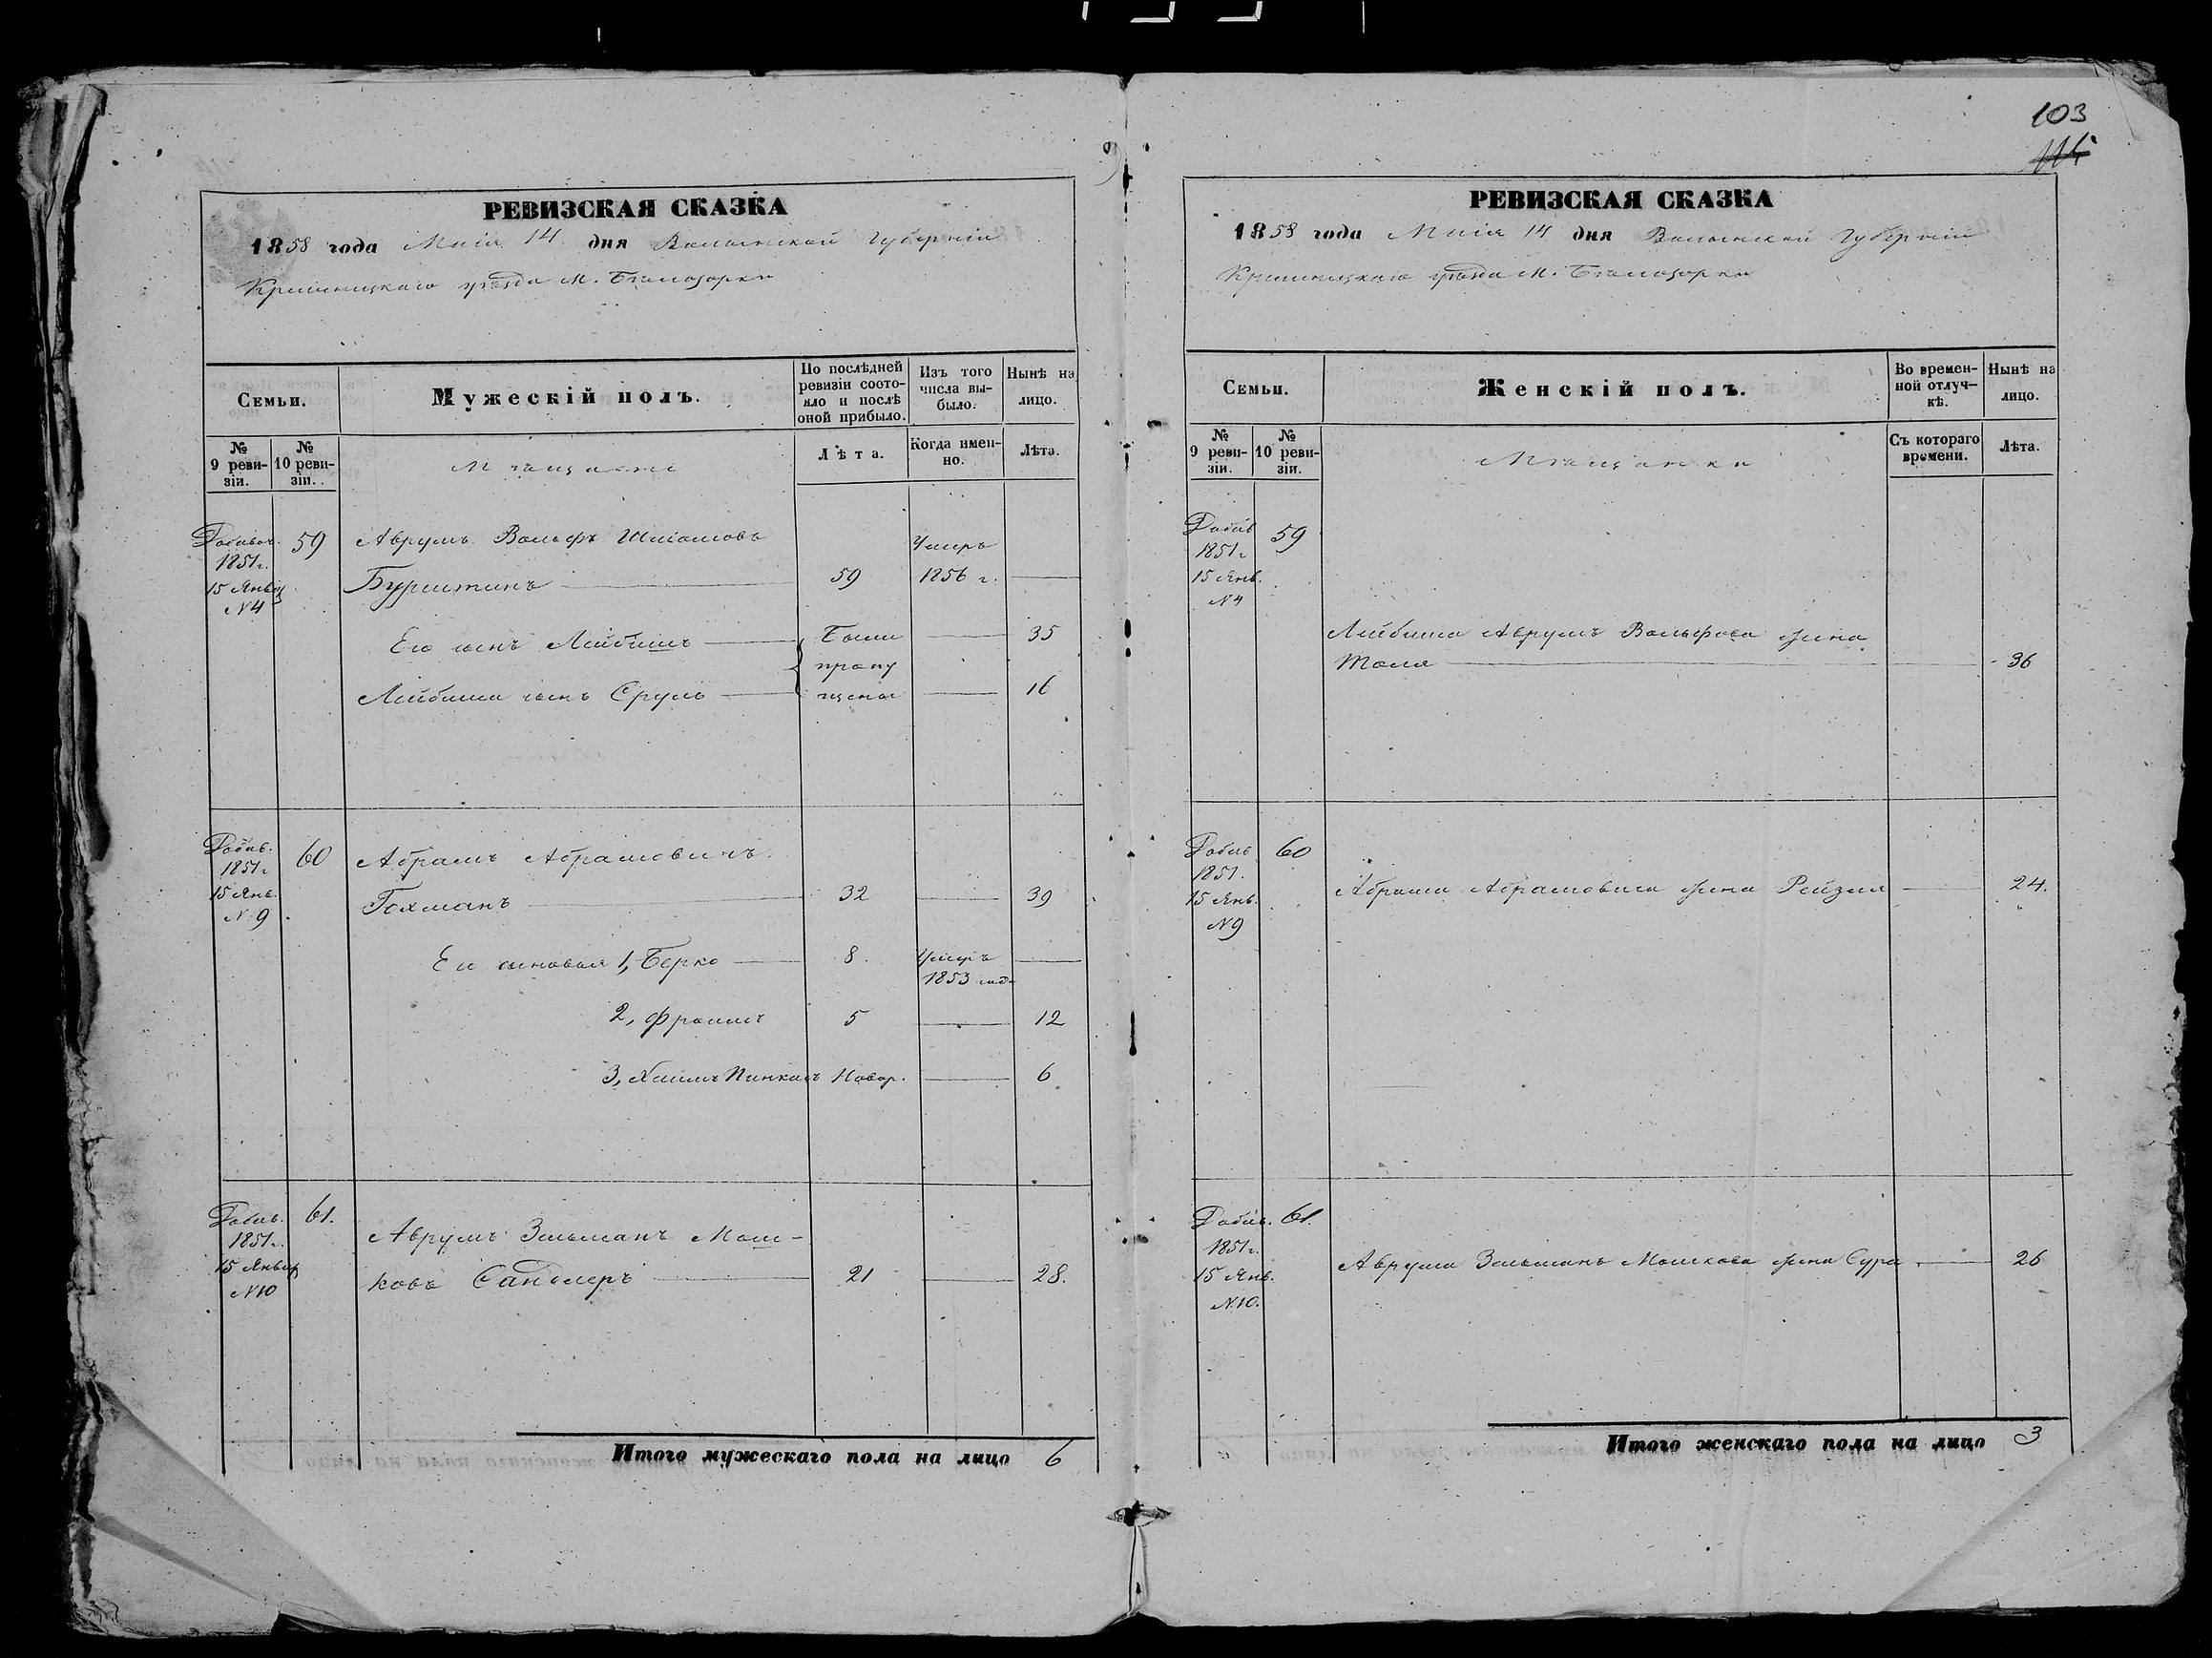 103
РЕВИЗСКАЯ СКАЗКА
1858 года Маія 14 дня Волынской Губерніи
Кременецкаго уѣзда М. Бѣлозорки
Семьи.
Мужескій полъ.
По послѣдней ревизіи состояло и послѣ оной прибыло.
Изъ того числа выбыло.
Нынѣ на лицо.
№ 9 ревизіи.
№ 10 ревизіи.
Мѣщане
Лѣта.
Когда именно.
Лѣта.
Добавоч. 59 Аврумъ Вольфъ Шліомовъ Умеръ
1851 г.
15 Января Бурштинъ 59 1856 г.
№ 4
Его сынъ Лейбишъ Были 35
пропу
Лейбиша сынъ Сруль щены 16
Добав. 60 Абрамъ Абрамовичъ
1851 г.
15 Янв. Гохманъ 32 39
№ 9
Его сыновья 1, Берко 8. Умеръ
1853 год
2, Фроимъ 5 12
3, Хаимъ Пинкасъ Новор. 6
Добав. 61. Аврумъ Зельманъ Мош-
1851 г.
15 Января ковъ Сандлеръ 21 28.
№ 10
Итого мужескаго пола на лицо 6
РЕВИЗСКАЯ СКАЗКА
1858 года Маія 14 дня Волынской Губерніи
Кременецкаго уѣзда М. Бѣлозорки
Семьи.
Женскій полъ.
Во временной отлучкѣ.
Нынѣ на лицо.
№ 9 ревизіи.
№ 10 ревизіи.
Мѣщанки
Съ котораго времени.
Лѣта.
Добав 59
1851 г
15 Янв.
№ 4
Лейбиша Аврумъ Вольфова жена
36
Добав 60
1851.
15 Янв. Абрама Абрамовича жена Рейзля 24.
№ 9
Добав. 61.
1851 г.
15 Янв. Аврума Зельманъ Мошкова жена Сура 26
№ 10.
Итого женскаго пола на лицо 3